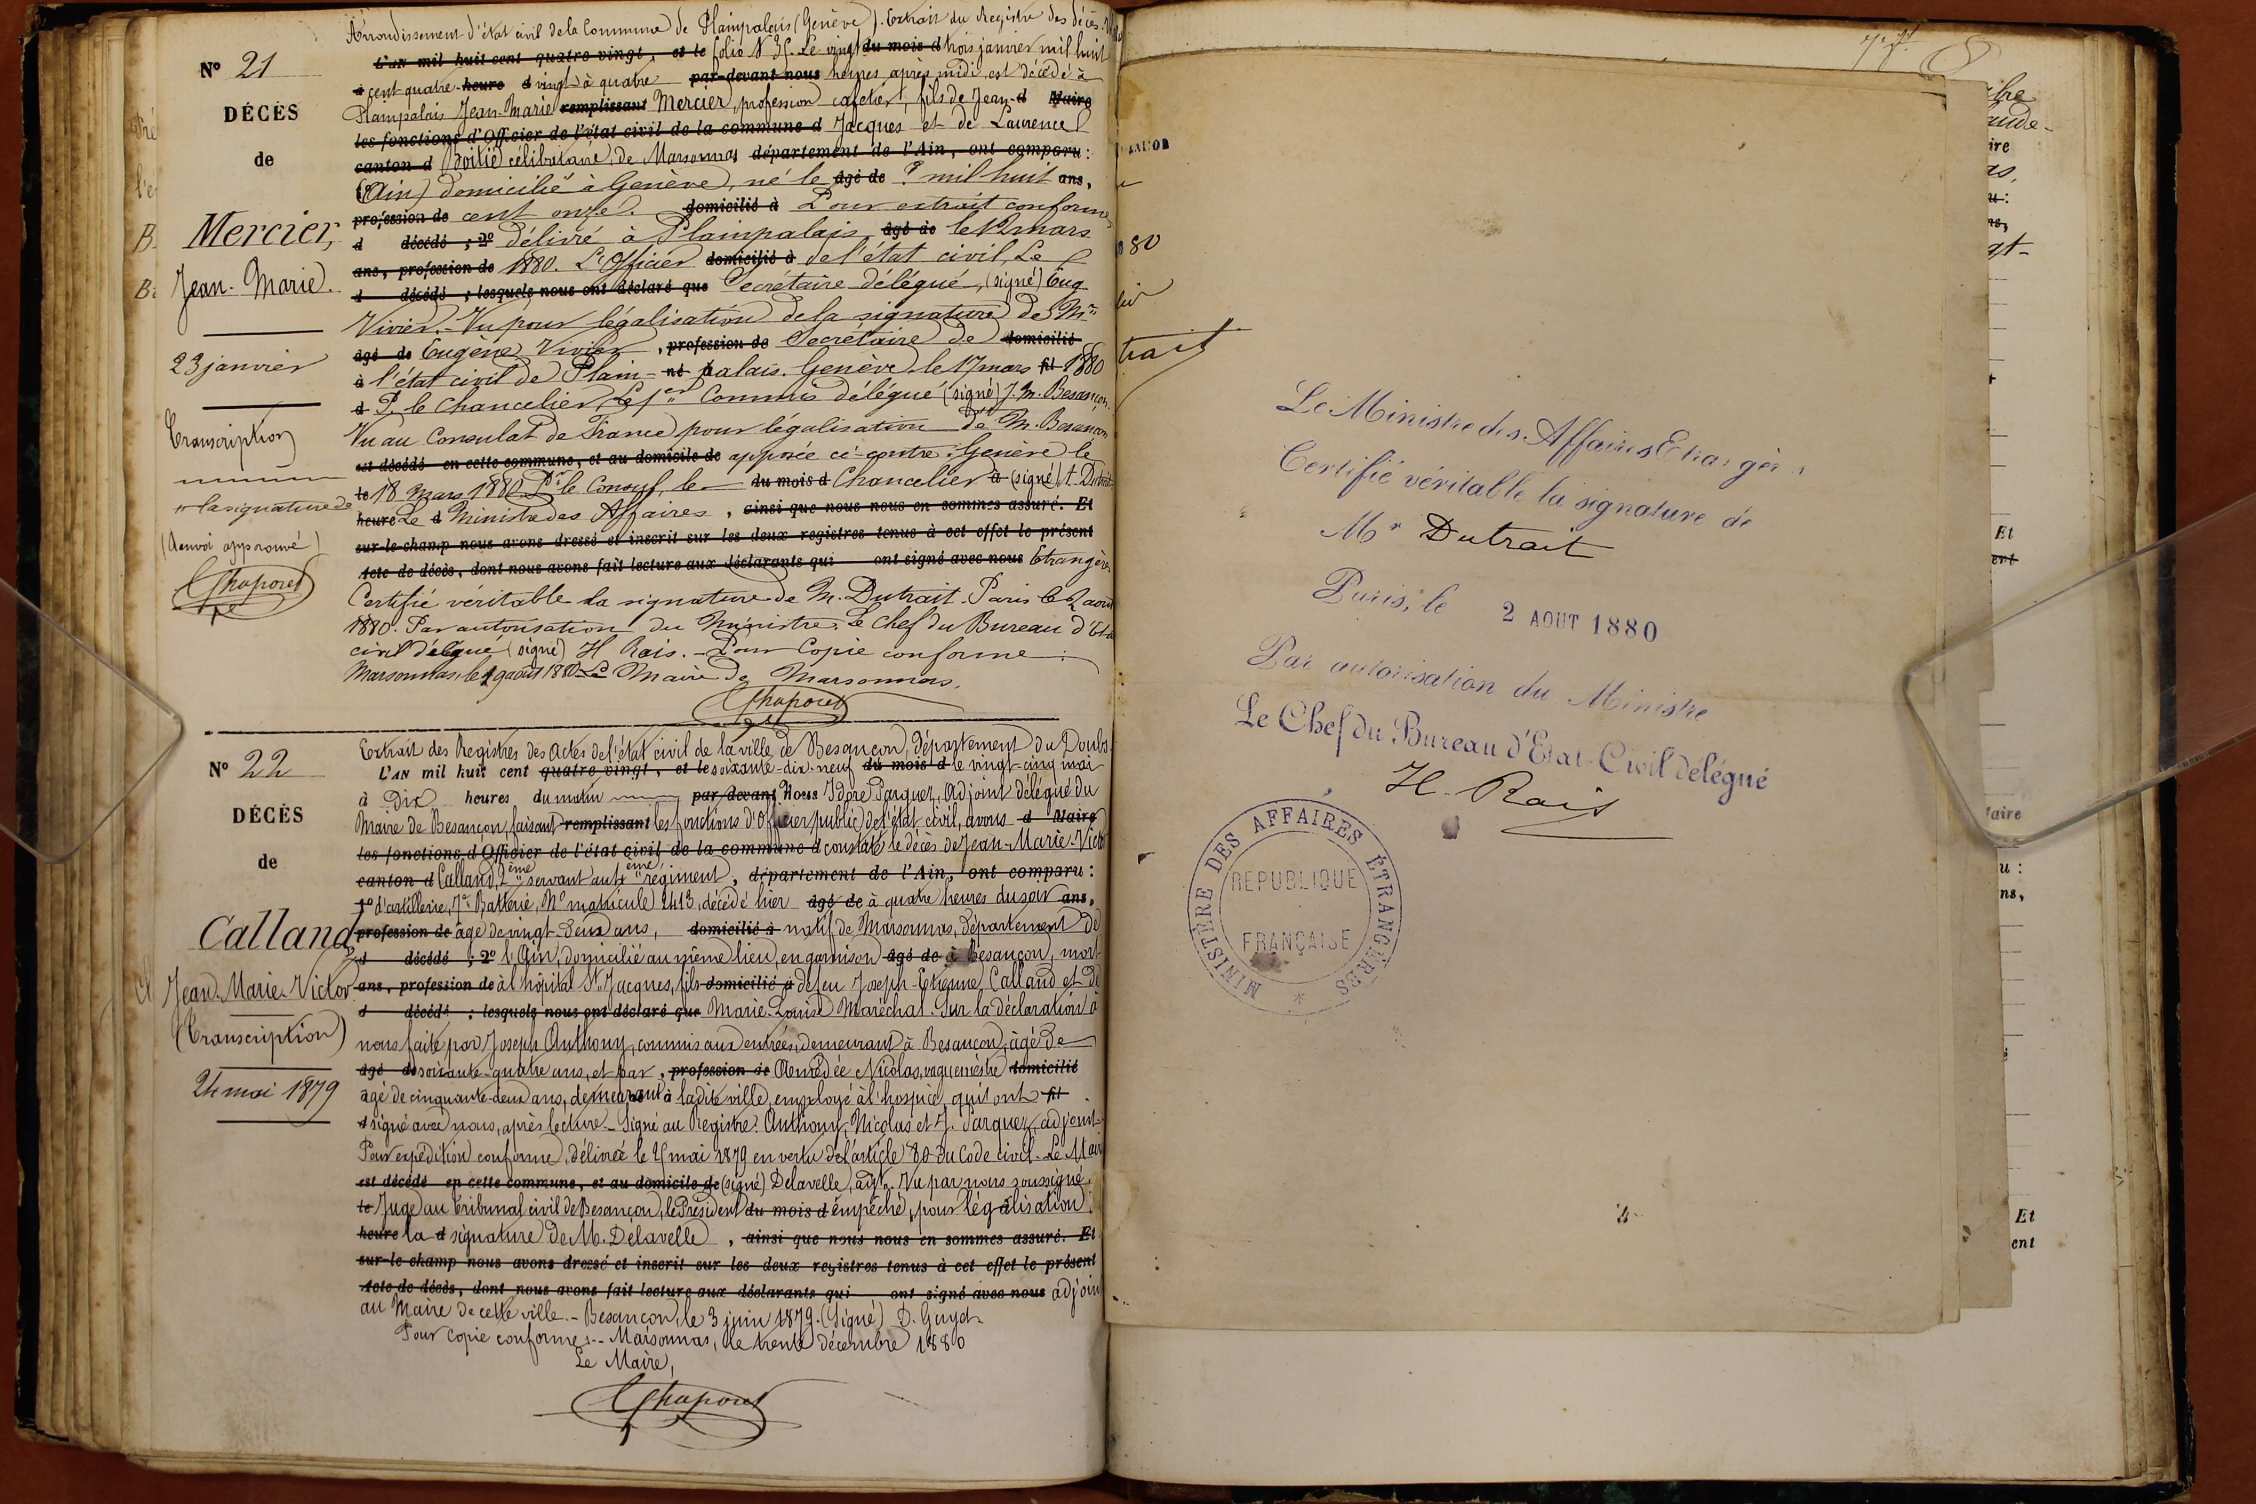 Arrondissement d'état civil de la Commune de Plainpalais (Genève). Extrait du Registre des décès.
L'AN mil huit cent quatre vingt, et le folio N° 35. Le vingt du mois d trois janvier mil huit
à cent quatre-heure d vingt à quatre par-devant nous heures après midi, est décédé à
Plainpalais Jean-Marie remplissant Mercier, profession cafetier, fils de Jean-d Maire
les fonctions d'Officier de l'état civil de la commune d Jacques et de Laurence
canton d Boitié célibataire, de Marsonnas département de l'Ain, ont comparu :
(Ain) domicilié à Genève, né le âgé de ? mil huit ans,
profession de cent onze. domicilié à Pour extrait conforme
d décédé ; 2° délivré à Plainpalais, âgé de le 12 mars
ans, profession de 1880. L'Officier domicilié à de l'état civil, Le
d décédé ; lesquels nous ont déclaré que Secrétaire délégué, (signé) Eug
Vivier. - Vu pour légalisation de la signature de Mr
âgé de Eugène Vivier, profession de Secrétaire de domicilié
à l'état civil de Plain- né palais. Genève le 17 mars fil 1880
d P. le chancelier, Le 1er Commis délégué (signé) J. M. Besançon.
Vu au Consulat de France pour légalisation de M. Besançon
est décédé en cette commune, et au domicile de apposée ci-contre. Genève le
le 18 Mars 1880 Pr le Consul, le du mois d Chancelier à (signé) A. Dutrait
heure Le d Ministre des Affaires, ainsi que nous nous en sommes assuré. Et
sur-le-champ nous avons dressé et inscrit sur les deux registres tenus à cet effet le présent
acte de décès, dont nous avons fait lecture aux déclarants qui ont signé avec nous Etrangères
Certifié véritable la signature de M. Dutrait. Paris le 2 août
1880. Par autorisation du Ministre. Le Chef du Bureau d'Etat
civil délégué (signé) H Rais. - Pour Copie conforme :
Marsonnas, le 29 août 1880 Le Maire de Marsonnas,
Chaponet
N° 21
DÉCÈS
de
Mercier,
Jean-Marie.
23 janvier
Transcription
" la signature de
(Renvoi approuvé)
Chaponet
Extrait des Registres des Actes de l'état civil de la ville de Besançon, Département du Doubs.
L'AN mil huit cent quatre vingt, et le soixante-dix-neuf du mois d le vingt-cinq mai
à Dix heures du matin par devant Nous Idore Parguez, Adjoint délégué du
Maire de Besançon, faisant remplissant les fonctions d'Officier public de l'état civil, avons d Maire
les fonctions d'Officier de l'état civil de la commune d constaté le décès de Jean-Marie-Victor
canton d Calland, 2ème servant au ème régiment, département de l'Ain, ont comparu :
1° d'artillerie, 7e Batterie, N° matricule 2413, décédé hier âgé de à quatre heures du soir ans,
profession de âgé de vingt-deux ans, domicilié à natif de Marsonnas, Département de
d décédé ; 2° l'Ain, domicilié au même lieu, en garnison âgé de à Besançon, mort
ans, profession de à l'hôpital St Jacques, fils domicilié à de feu Joseph-Etienne Calland et de
d décédé ; lesquels nous ont déclaré que Marie-Louise Maréchal. Sur la déclaration à
nous faite par Joseph Anthony, commis aux entrées, demeurant à Besançon, âgé de
âgé de soixante-quatre ans, et par, profession de Amédée Nicolas, vaguemestre domicilié
âgé de cinquante-deux ans, demeurant à ladite ville, employé à l'hospice, qui ont fil
d signé avec nous, après lecture. - Signé au Registre : Anthony, Nicolas et J. Parguez, adjoint.
Pour expédition conforme, délivrée le 25 mai 1879 en vertu de l'article 80 du Code civil. Le Maire
est décédé en cette commune, et au domicile de (signé) Delavelle, adjt. Vu par nous soussigné
le Juge au Tribunal civil de Besançon, le Président du mois d empêché, pour légalisation
heure la d signature de M. Delavelle, ainsi que nous nous en sommes assuré. Et
sur-le-champ nous avons dressé et inscrit sur les deux registres tenus à cet effet le présent
acte de décès, dont nous avons fait lecture aux déclarants qui ont signé avec nous adjoint
au Maire de cette ville. - Besançon, le 3 juin 1879. (Signé) D. Guyd
Pour Copie conforme : - Marsonnas, le trente décembre 1880
Le Maire,
Chaponet
N° 22
DÉCÈS
de
Calland,
Jean-Marie-Victor
(Transcription)
24 mai 1879
Le Ministre des Affaires Etrangères
Certifié véritable la signature de
Mr Dutrait
Paris, le 2 AOUT 1880
Par autorisation du Ministre
Le Chef du Bureau d'Etat-Civil délégué
H. Rais
MINISTÈRE DES AFFAIRES ÉTRANGÈRES
REPUBLIQUE
FRANÇAISE
trait
80
Et
Et
ent